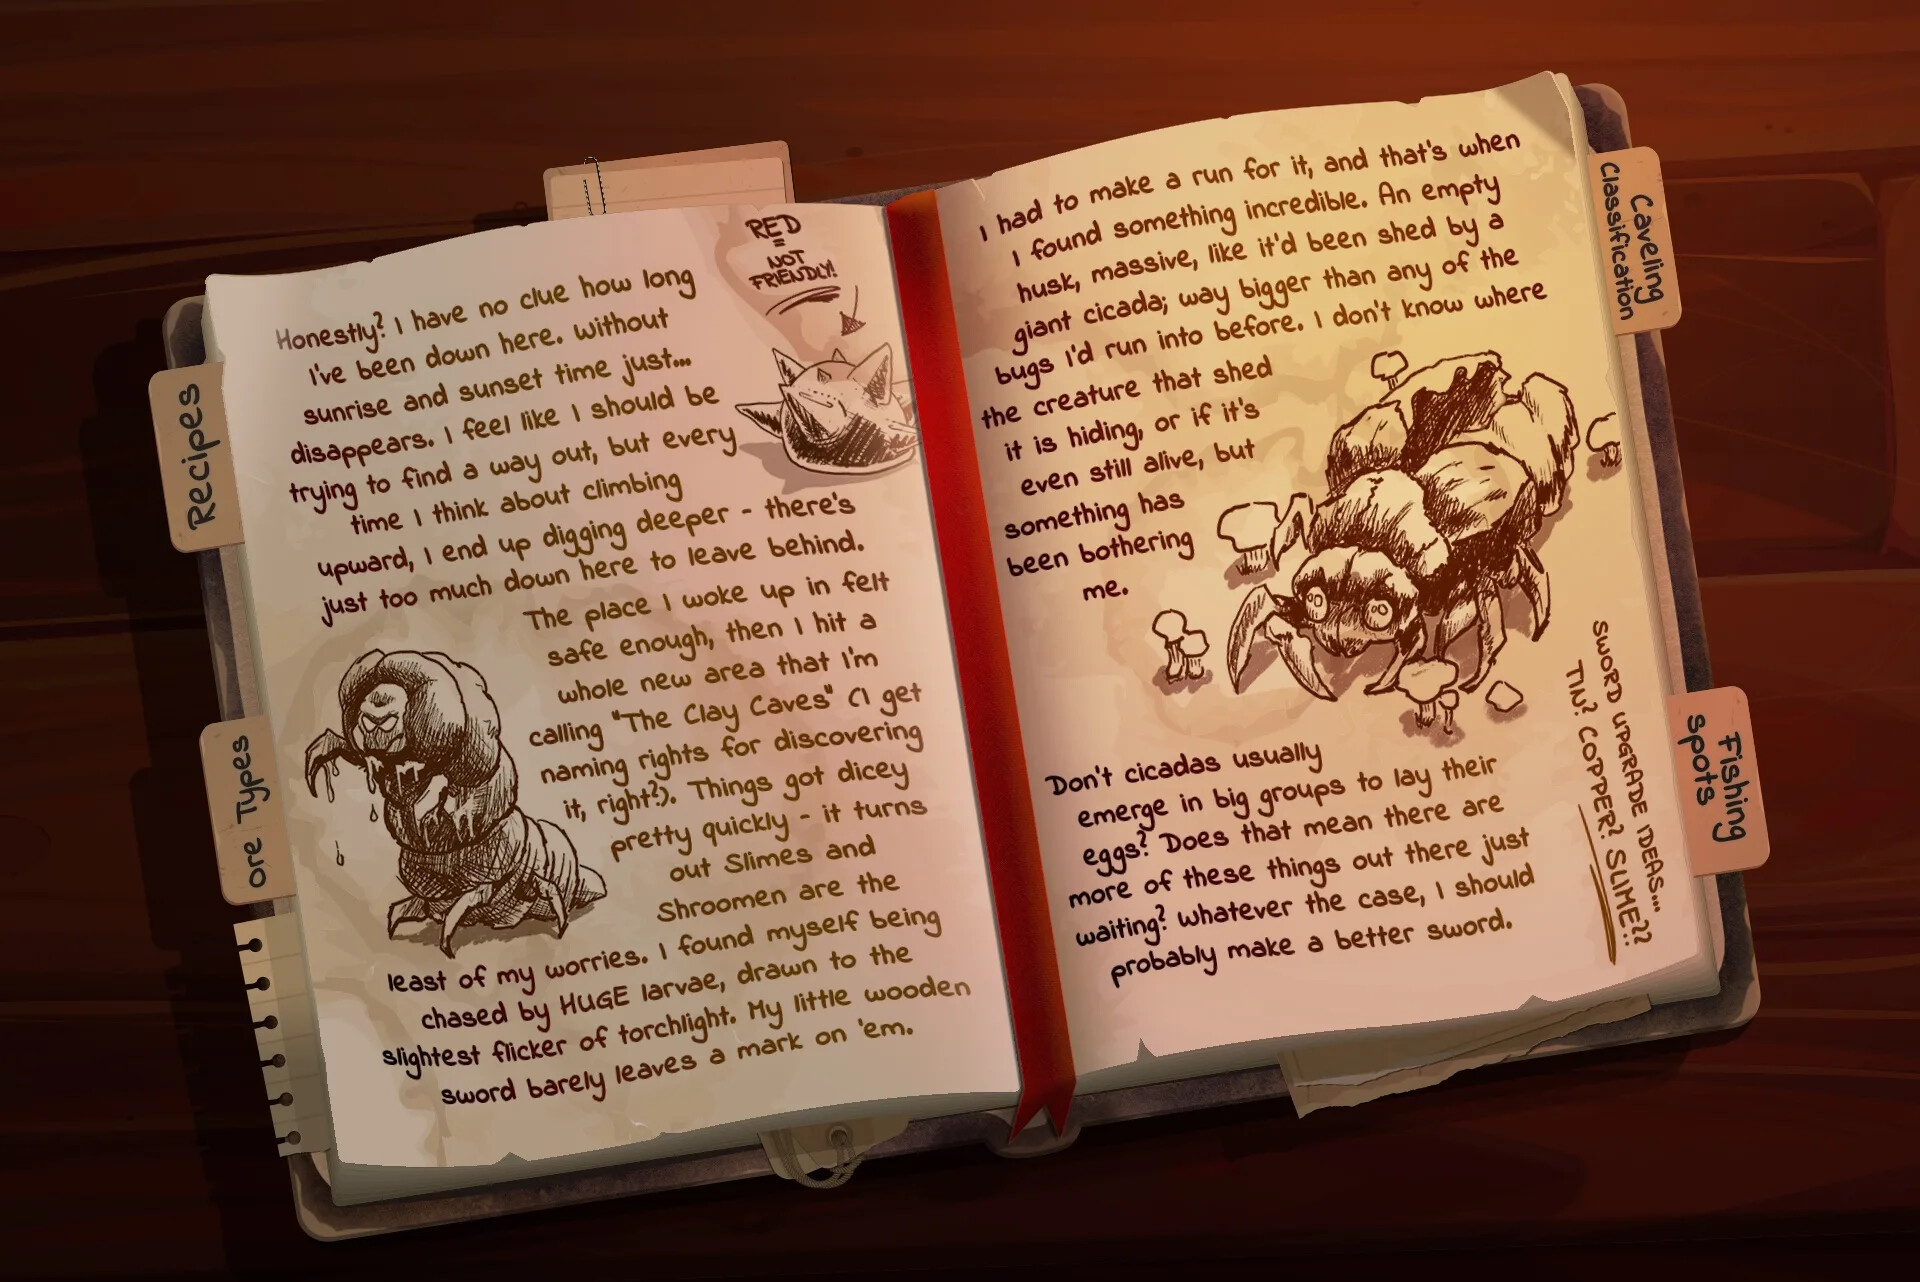 Honestly? I have no clue how long
I've been down here. Without
sunrise and sunset time just...
disappears. I feel like I should be
trying to find a way out, but every
time I think about climbing
upward, I end up digging deeper - there's
just too much down here to leave behind.
The place I woke up in felt
safe enough, then I hit a
whole new area that I'm
calling "The Clay Caves" (I get
naming rights for discovering
it, right?). Things got dicey
pretty quickly - it turns
out Slimes and
Shroomen are the
least of my worries. I found myself being
chased by HUGE larvae, drawn to the
slightest flicker of torchlight. My little wooden
sword barely leaves a mark on 'em.
RED
=
NOT
FRIENDLY!
I had to make a run for it, and that's when
I found something incredible. An empty
husk, massive, like it'd been shed by a
giant cicada; way bigger than any of the
bugs I'd run into before. I don't know where
the creature that shed
it is hiding, or if it's
even still alive, but
something has
been bothering
me.
Don't cicadas usually
emerge in big groups to lay their
eggs? Does that mean there are
more of these things out there just
waiting? Whatever the case, I should
probably make a better sword.
SWORD UPGRADE IDEAS...
TIN? COPPER? SLIME??
Recipes
Ore Types
Caveling
Classification
Fishing
Spots